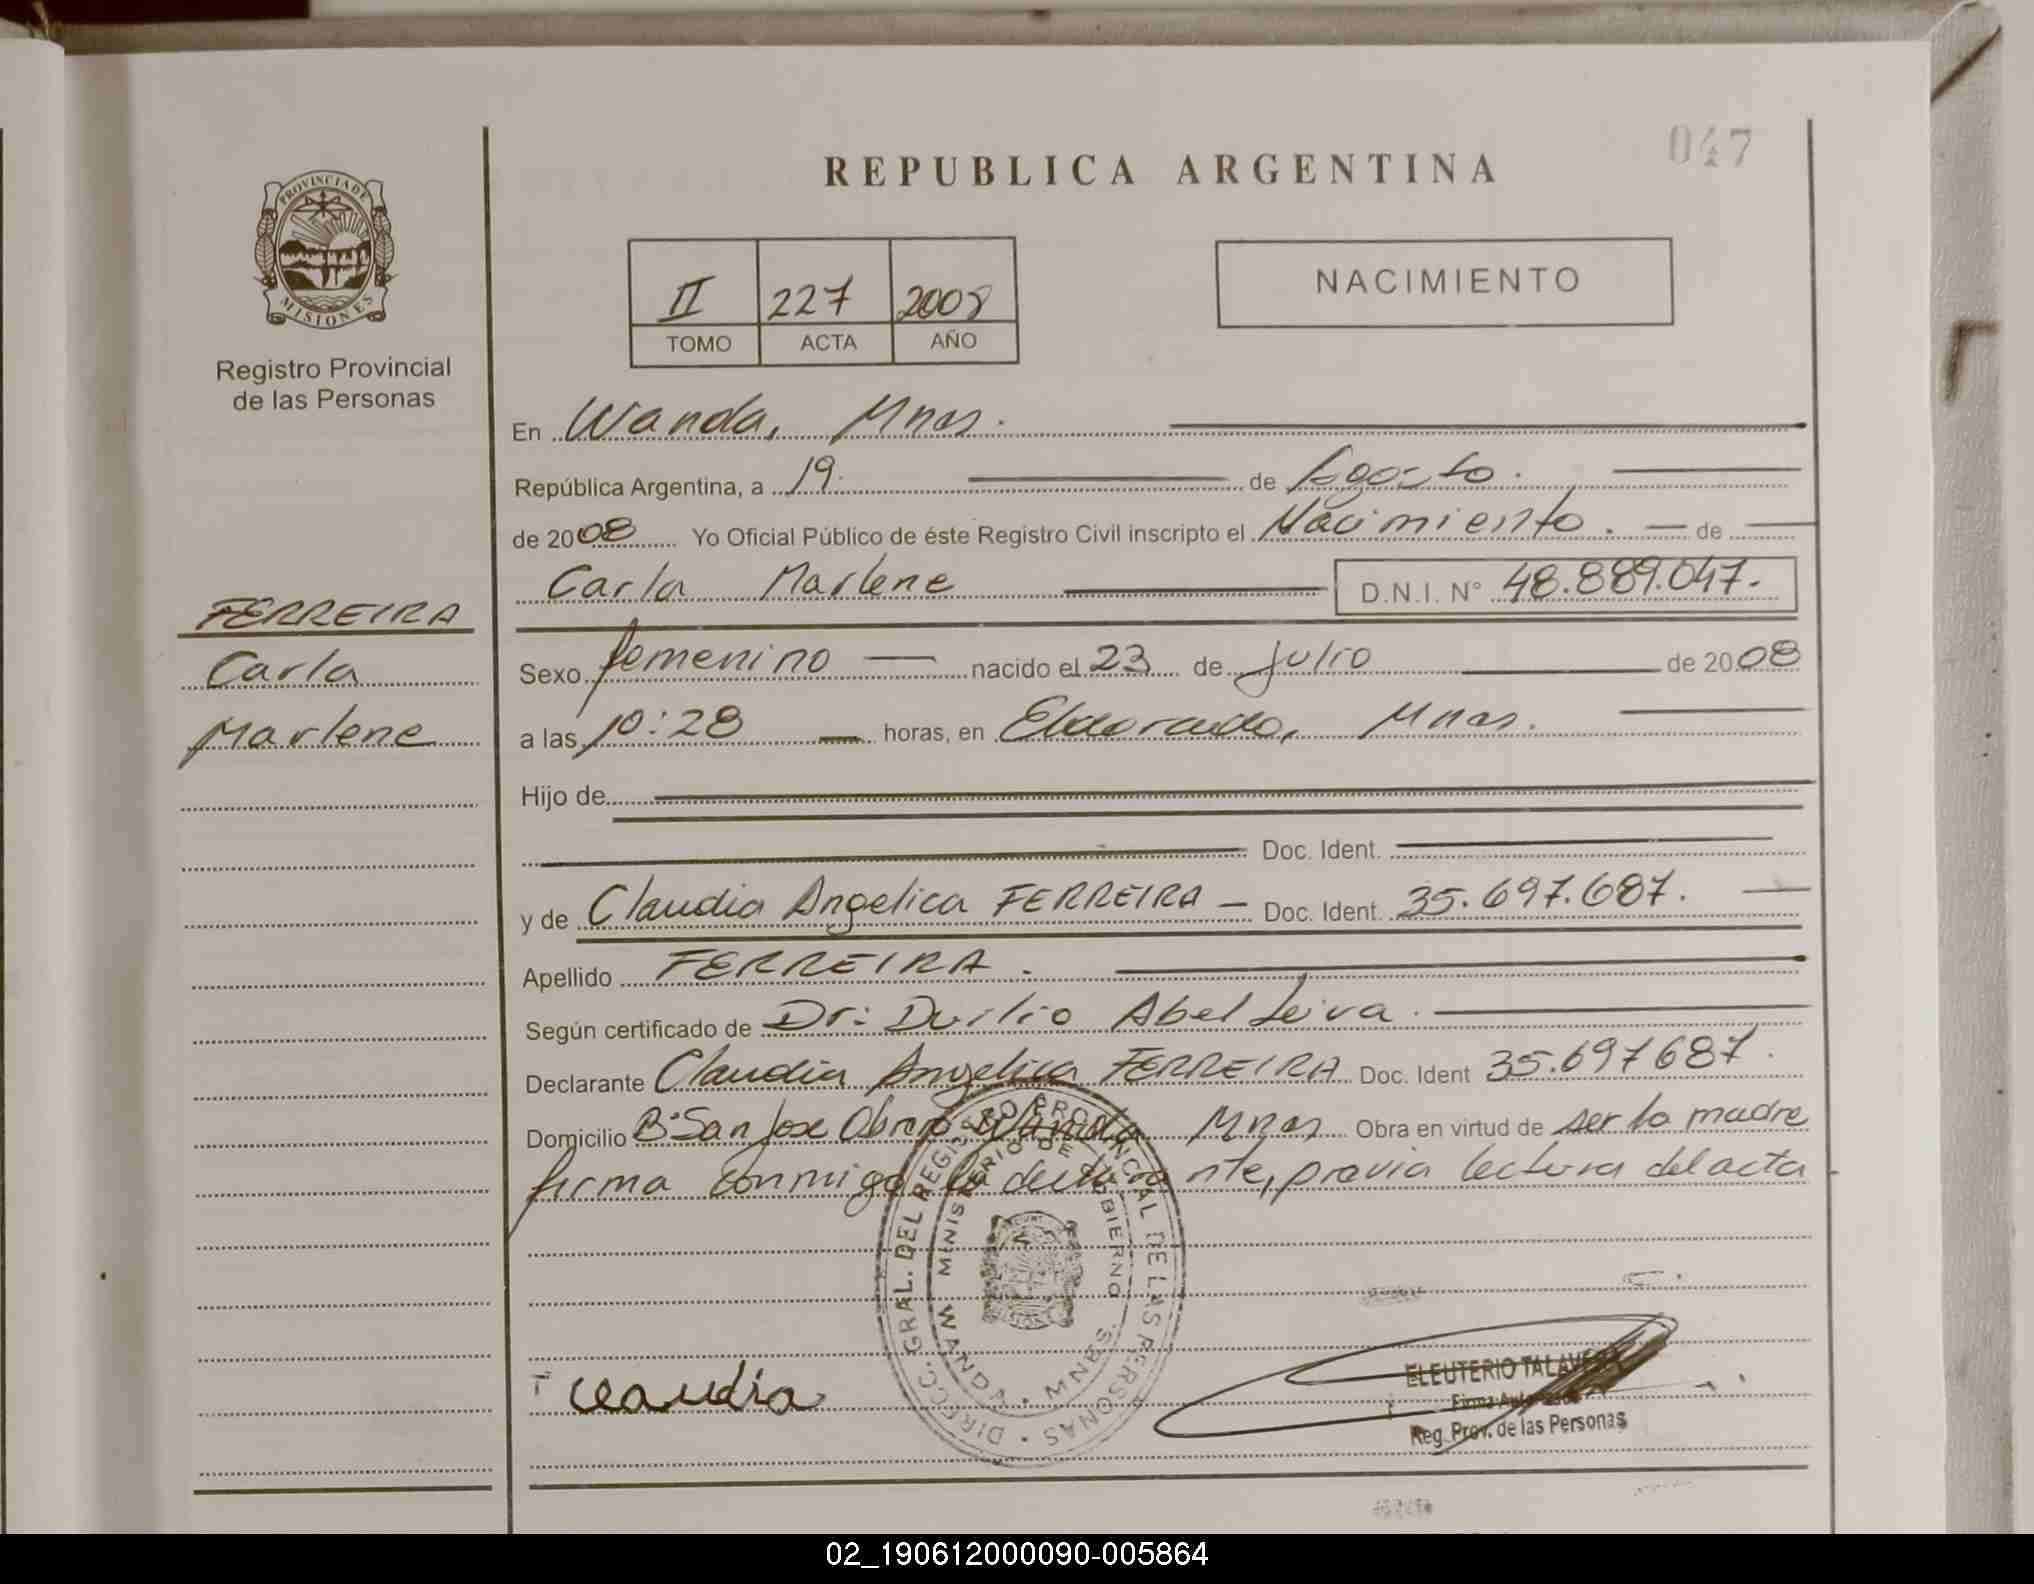 047
REPUBLICA ARGENTINA
PROVINCIA DE
MISIONES
Registro Provincial
de las Personas
II 227 2008
TOMO ACTA AÑO
NACIMIENTO
FERREIRA
Carla
Marlene
En Wanda, Mnes.
República Argentina, a 19. de Agosto.
de 2008 Yo Oficial Público de éste Registro Civil inscripto el Nacimiento. de
Carla Marlene D.N.I. N° 48.889.047.
Sexo femenino nacido el 23 de julio de 2008
a las 10:28 horas, en Eldorado, Mnes.
Hijo de
Doc. Ident.
y de Claudia Angelica FERREIRA Doc. Ident. 35.697.687.
Apellido FERREIRA.
Según certificado de Dr: Duilio Abel Leiva.
Declarante Claudia Angelica FERREIRA Doc. Ident 35.697687.
Domicilio B° San Jose Obrero Wanda Mnes Obra en virtud de ser la madre
firma conmigo la declarante, previa lectura del acta
DIRECC. GRAL. DEL REGISTRO PROVINCIAL DE LAS PERSONAS
MINISTERIO DE GOBIERNO
WANDA MNES.
Claudia
ELEUTERIO TALAVERA
Firma Autorizada
Reg. Prov. de las Personas
02_190612000090-005864